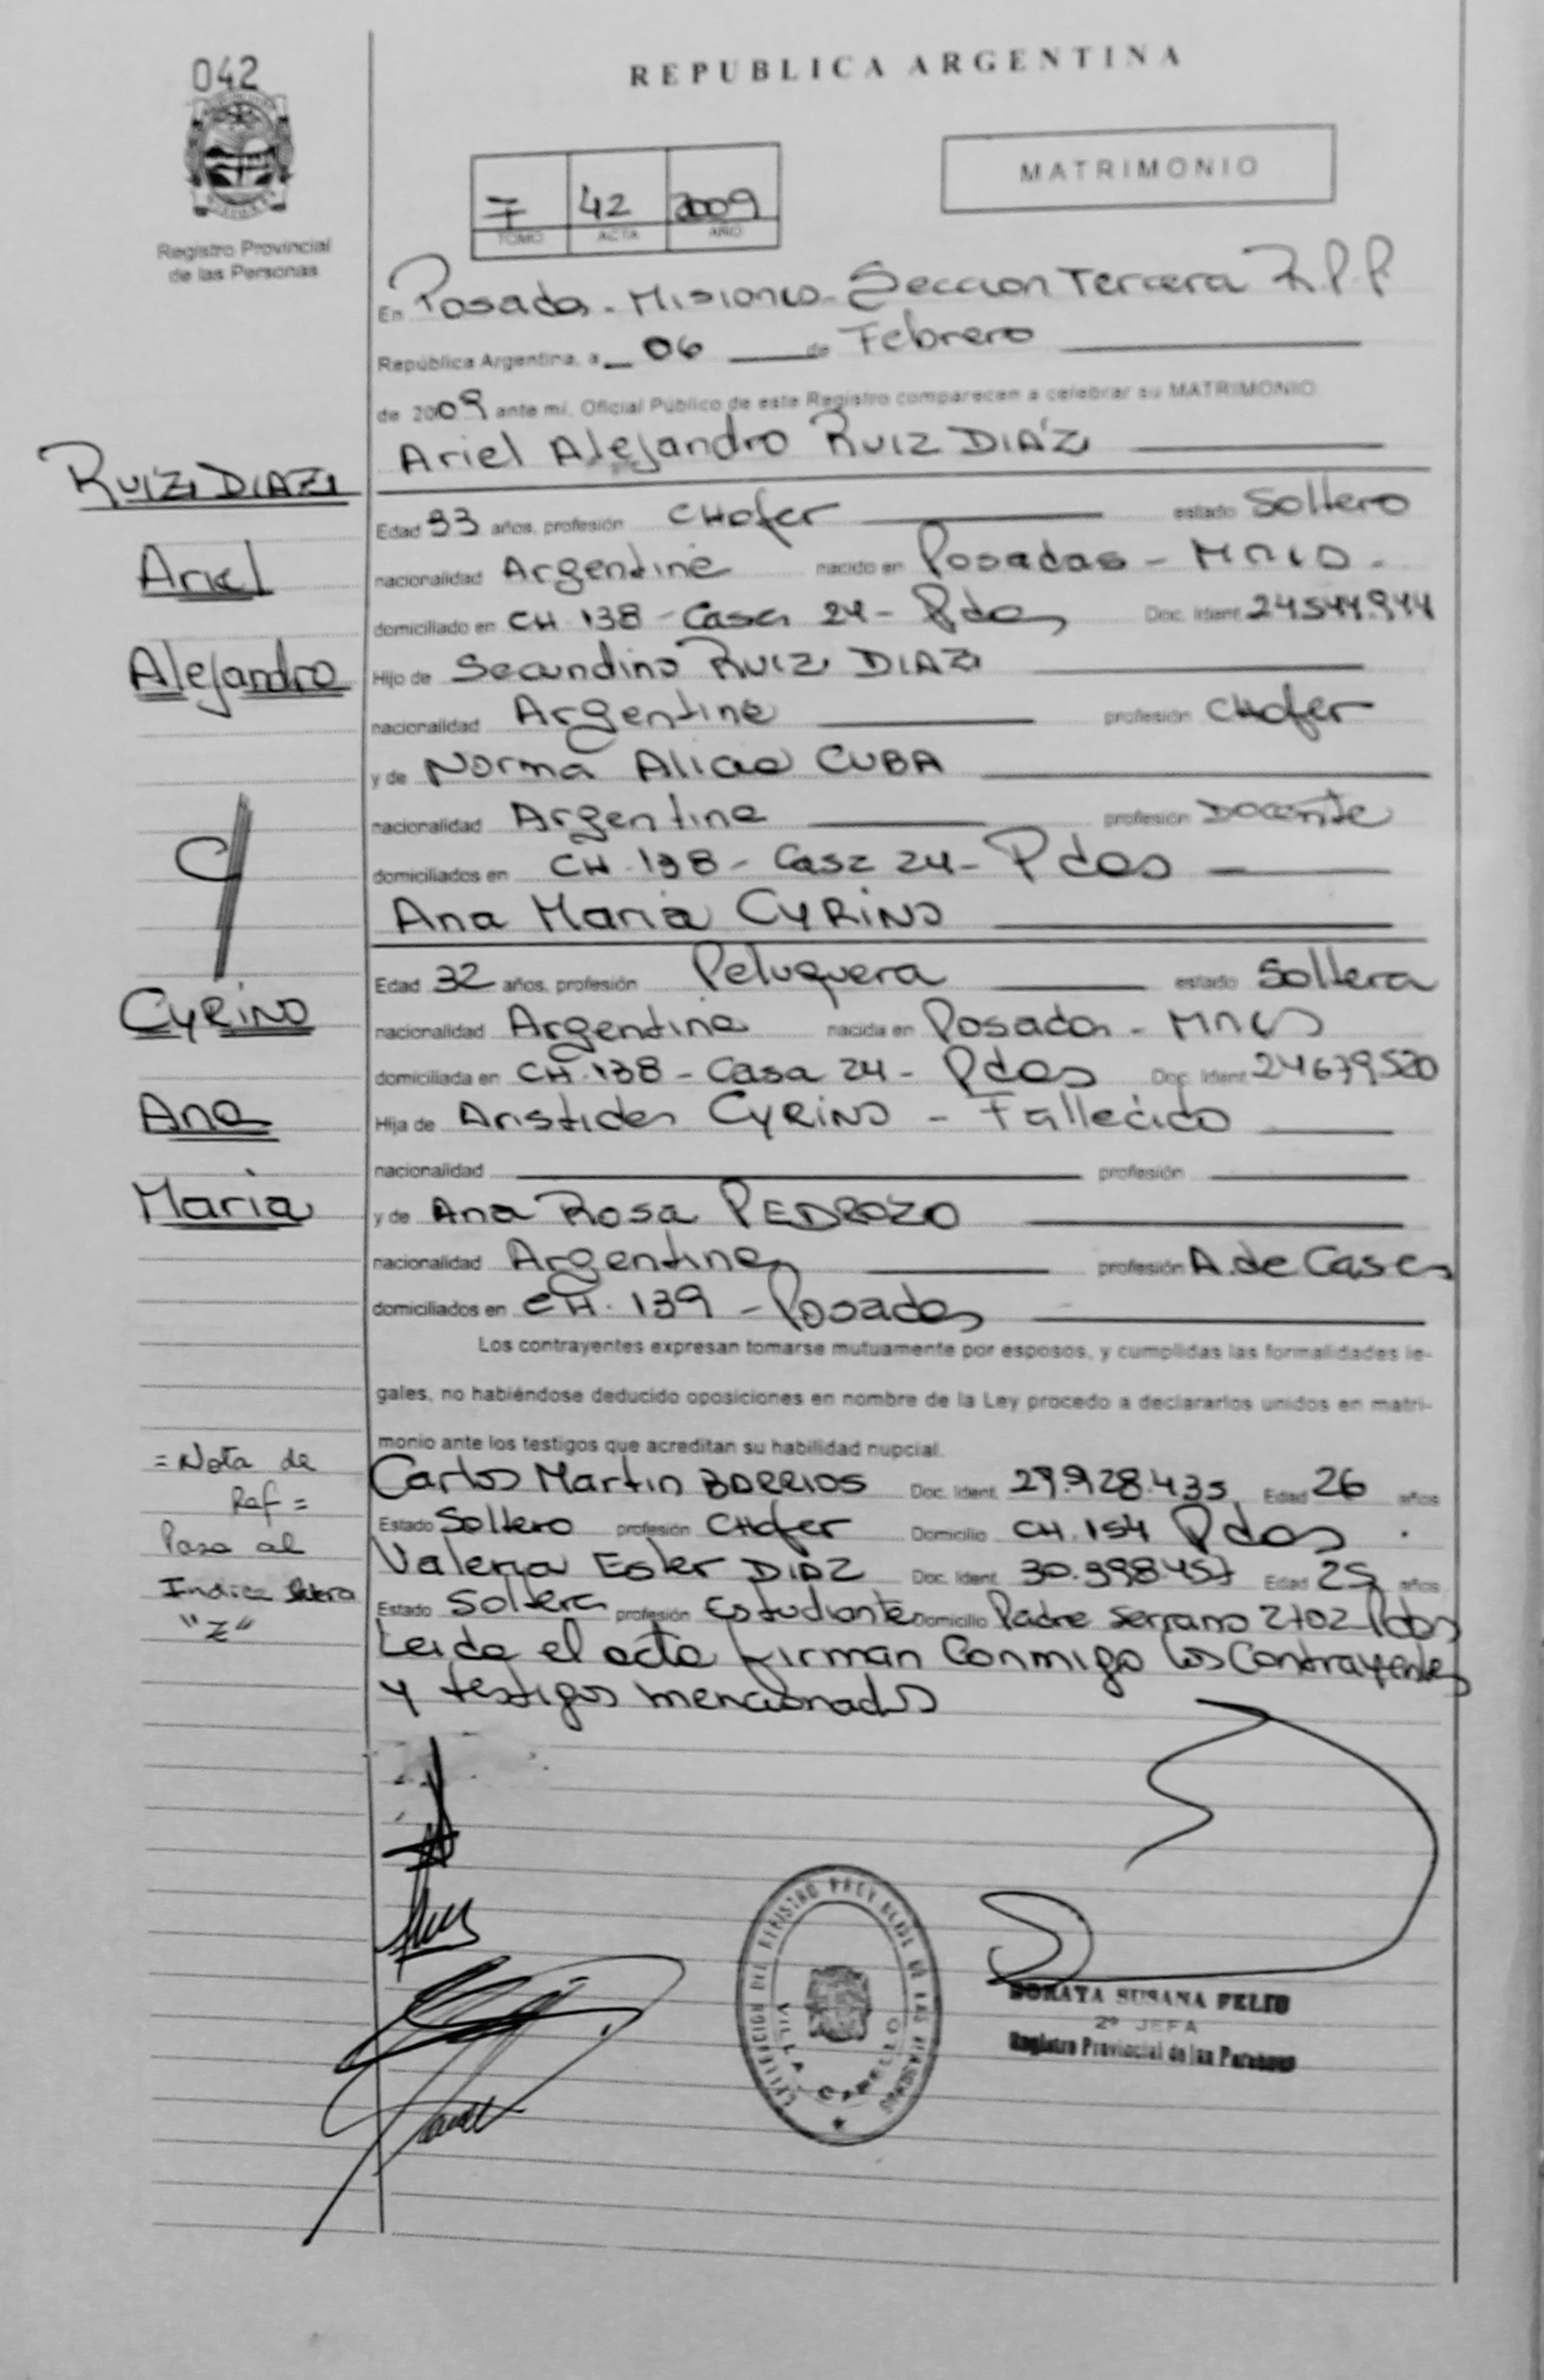 042
REPUBLICA ARGENTINA
MATRIMONIO
7 42 2009
TOMO ACTA AÑO
Registro Provincial
de las Personas
En Posadas - Misiones - Seccion Tercera R.P.P
República Argentina, a 06 de Febrero
de 2009 ante mi, Oficial Público de este Registro comparecen a celebrar su MATRIMONIO
Ariel Alejandro RUIZ DIAZ
Edad 33 años, profesión CHofer estado Soltero
nacionalidad Argentina nacido en Posadas - Mnes.
domiciliado en CH. 138 - Casa 24 - Pdas Doc. Ident. 24.544.944
Hijo de Secundino RUIZ DIAZ
nacionalidad Argentina profesión CHofer
y de Norma Alicia CUBA
nacionalidad Argentina profesión Docente
domiciliados en CH. 138 - Casa 24 - Pdas
Ana Maria CYRINO
Edad 32 años, profesión Peluquera estado Soltera
nacionalidad Argentina nacida en Posadas - Mnes
domiciliada en CH. 138 - Casa 24 - Pdas Doc. Ident. 24679520
Hija de Aristides CYRINO - Fallecido
nacionalidad profesión
y de Ana Rosa PEDROZO
nacionalidad Argentina profesión A. de Casa
domiciliados en CH. 139 - Posadas
Los contrayentes expresan tomarse mutuamente por esposos, y cumplidas las formalidades le-
gales, no habiéndose deducido oposiciones en nombre de la Ley procedo a declararlos unidos en matri-
monio ante los testigos que acreditan su habilidad nupcial.
Carlos Martin BARRIOS Doc. Ident. 29.928.435 Edad 26 años
Estado Soltero profesión CHofer Domicilio CH. 154 Pdas.
Valeria Ester DIAZ Doc. Ident. 30.998.457 Edad 25 años
Estado Soltera profesión Estudiante Domicilio Padre Serrano 2702 Pdas
Leida el acta firman Conmigo los Contrayentes
y testigos mencionados
RUIZ DIAZ
Ariel
Alejandro
C/
CYRINO
Ana
Maria
= Nota de
Ref =
Pasa al
Indice letra
"Z"
DELEGACION DEL REGISTRO PROVINCIAL DE LAS PERSONAS
VILLA CABELLO
SUSANA FELIU
2º JEFA
Registro Provincial de las Personas